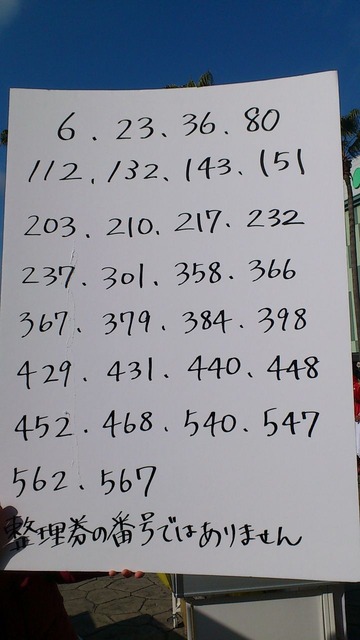 6.23.36.80
112.132.143.151
203.210.217.232
237.301.358.366
367.379.384.398
429.431.440.448
452.468.540.547
562.567
整理券の番号ではありません